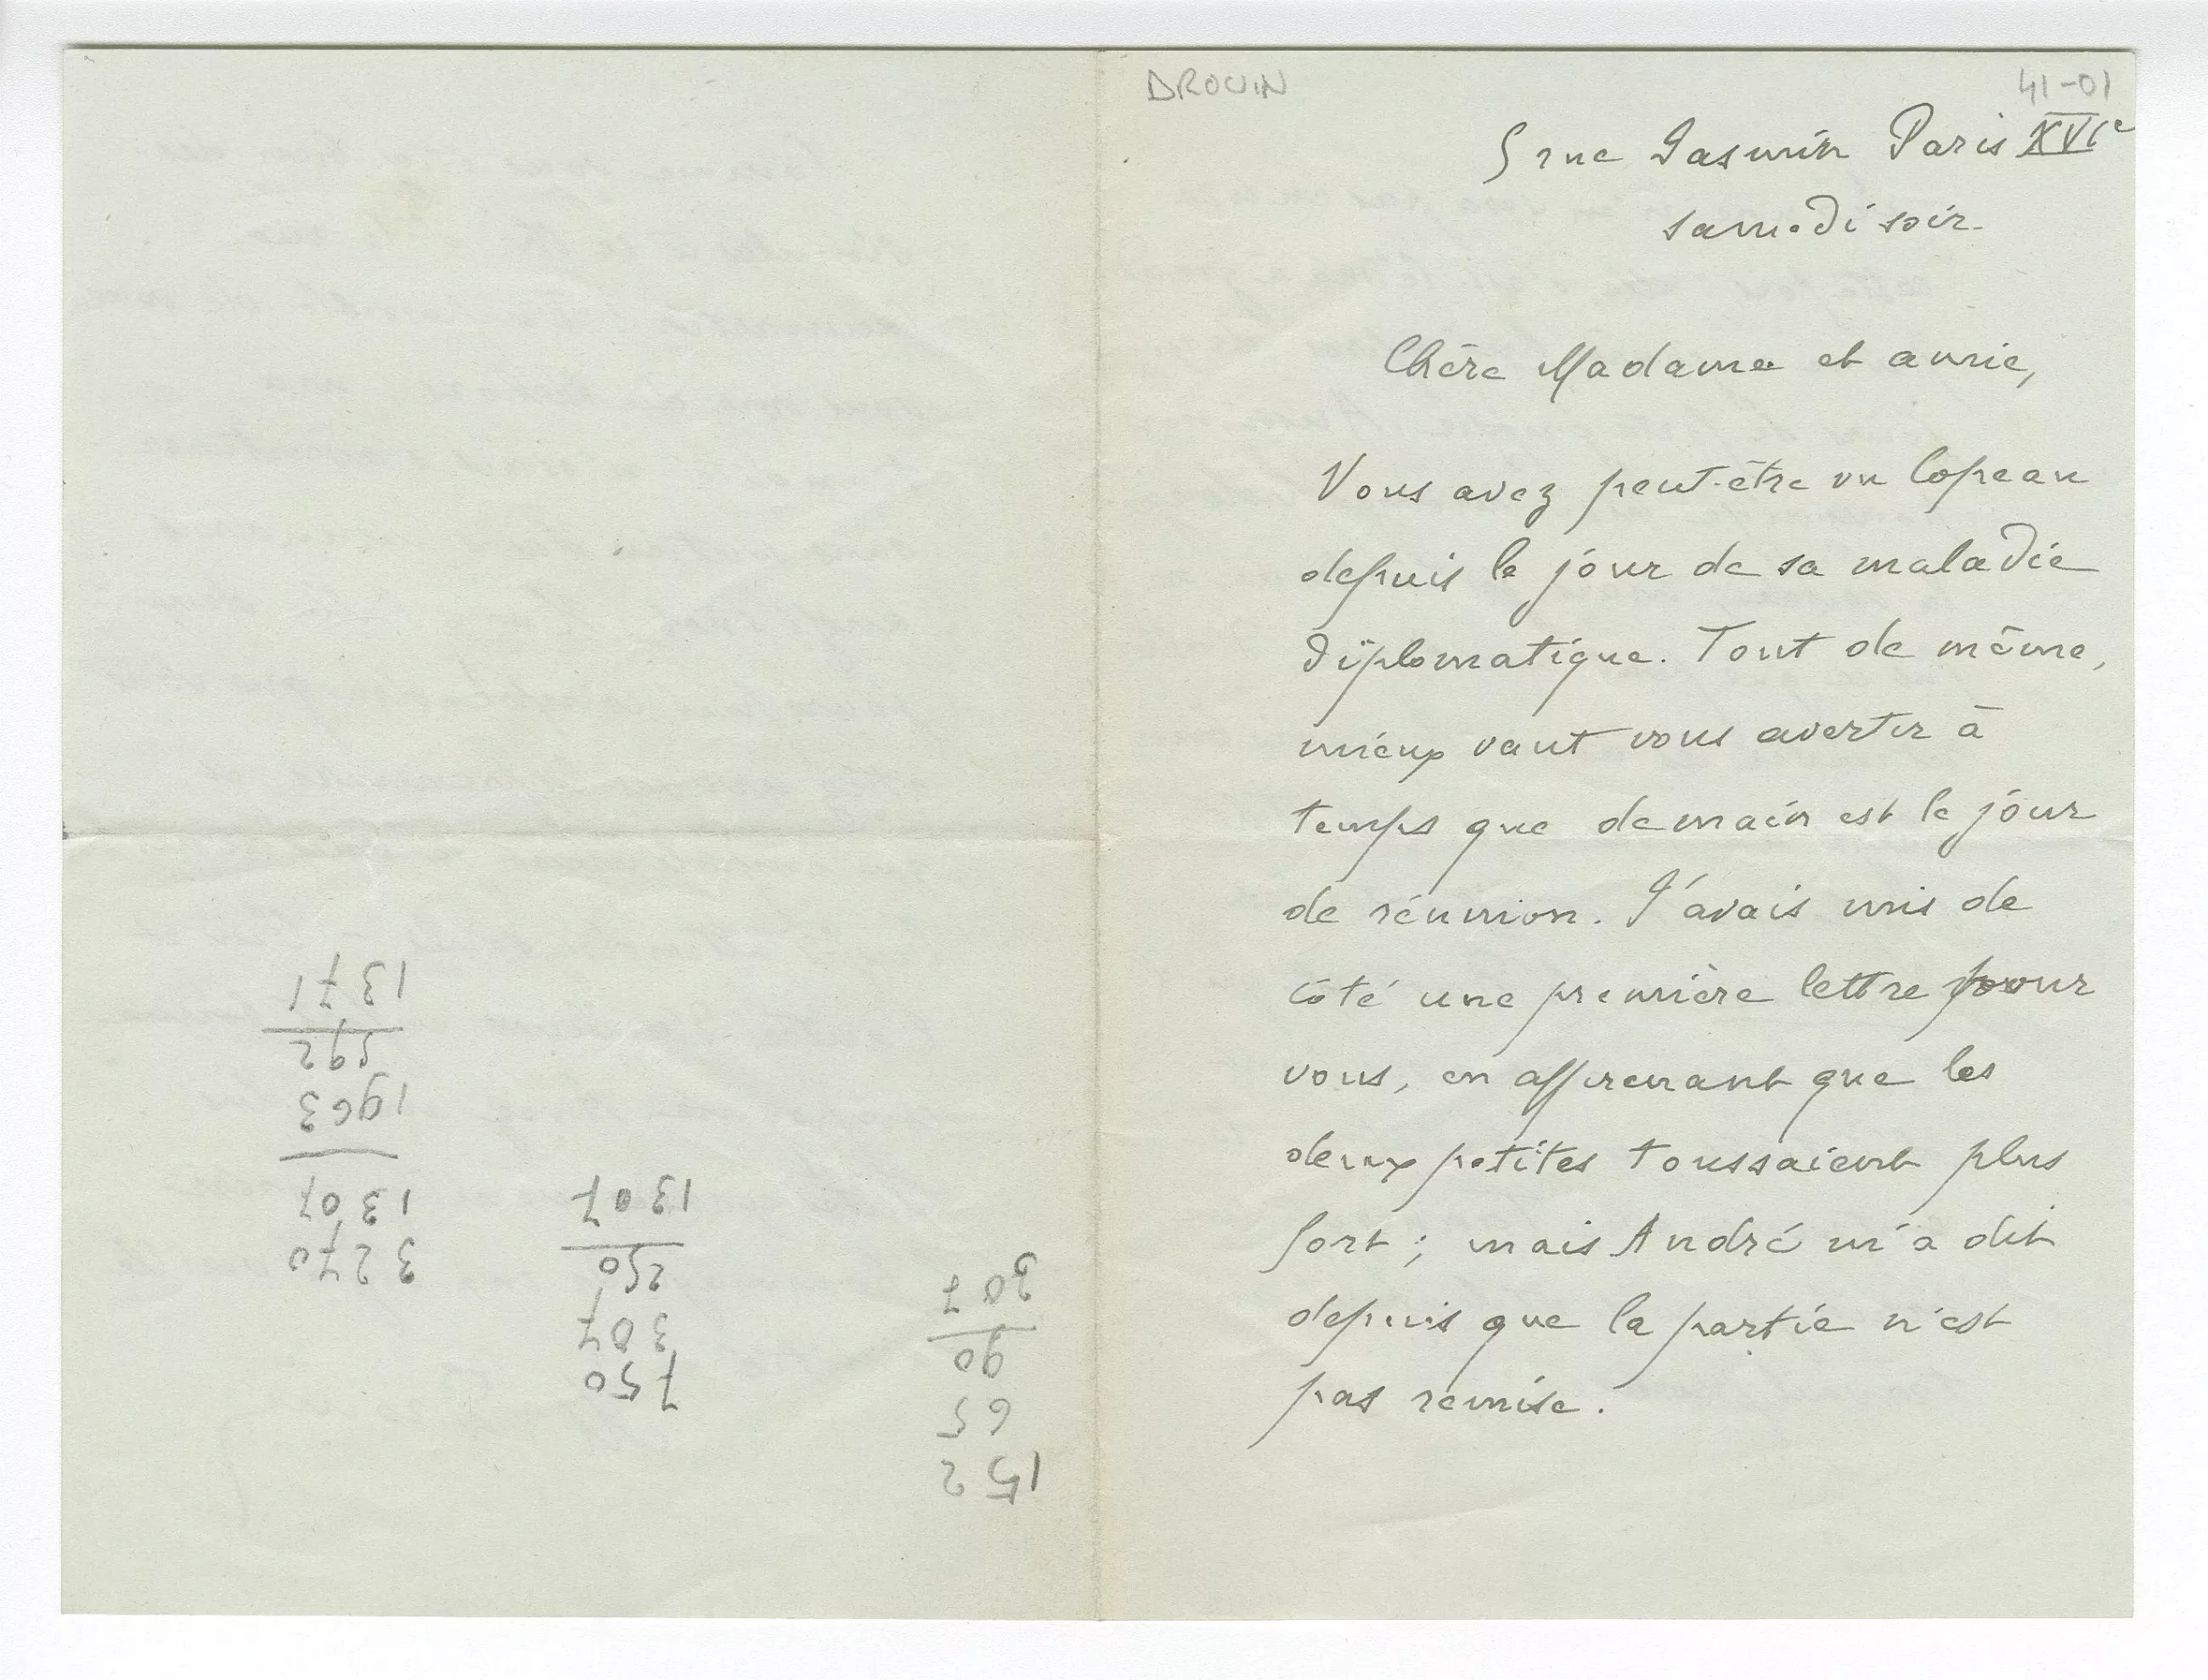 DROUIN
41-01
5 rue Jasmin Paris XVIe
samedi soir.
Chère Madame et amie,
Vous avez peut-être vu Copeau
depuis le jour de sa maladie
diplomatique. Tout de même,
mieux vaut vous avertir à
temps que demain est le jour
de réunion. J'avais mis de
côté une première lettre pour
vous, en apprenant que les
deux petites toussaient plus
fort ; mais André m'a dit
depuis que la partie n'est
pas remise.
152
65
90
307
750
307
250
1307
3270
1307
1963
592
1371